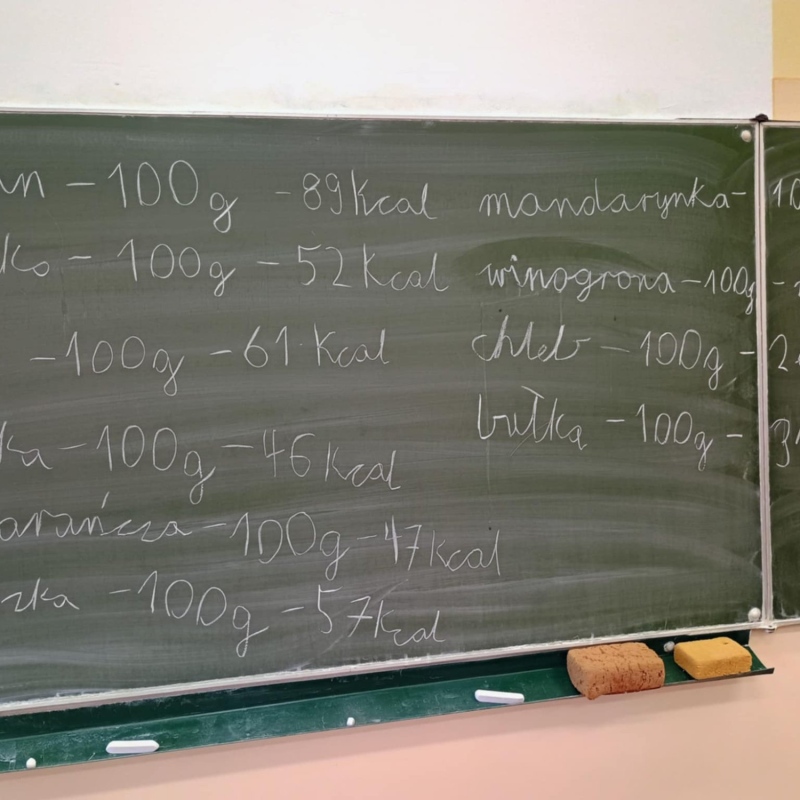 an - 100g - 89 Kcal
ko - 100g - 52 Kcal
- 100g - 61 Kcal
ka - 100g - 46 Kcal
arańcza - 100g - 47 Kcal
szka - 100g - 57 Kcal
mandarynka - 10
winogrona - 100g -
chleb - 100g - 2
bułka - 100g - 3